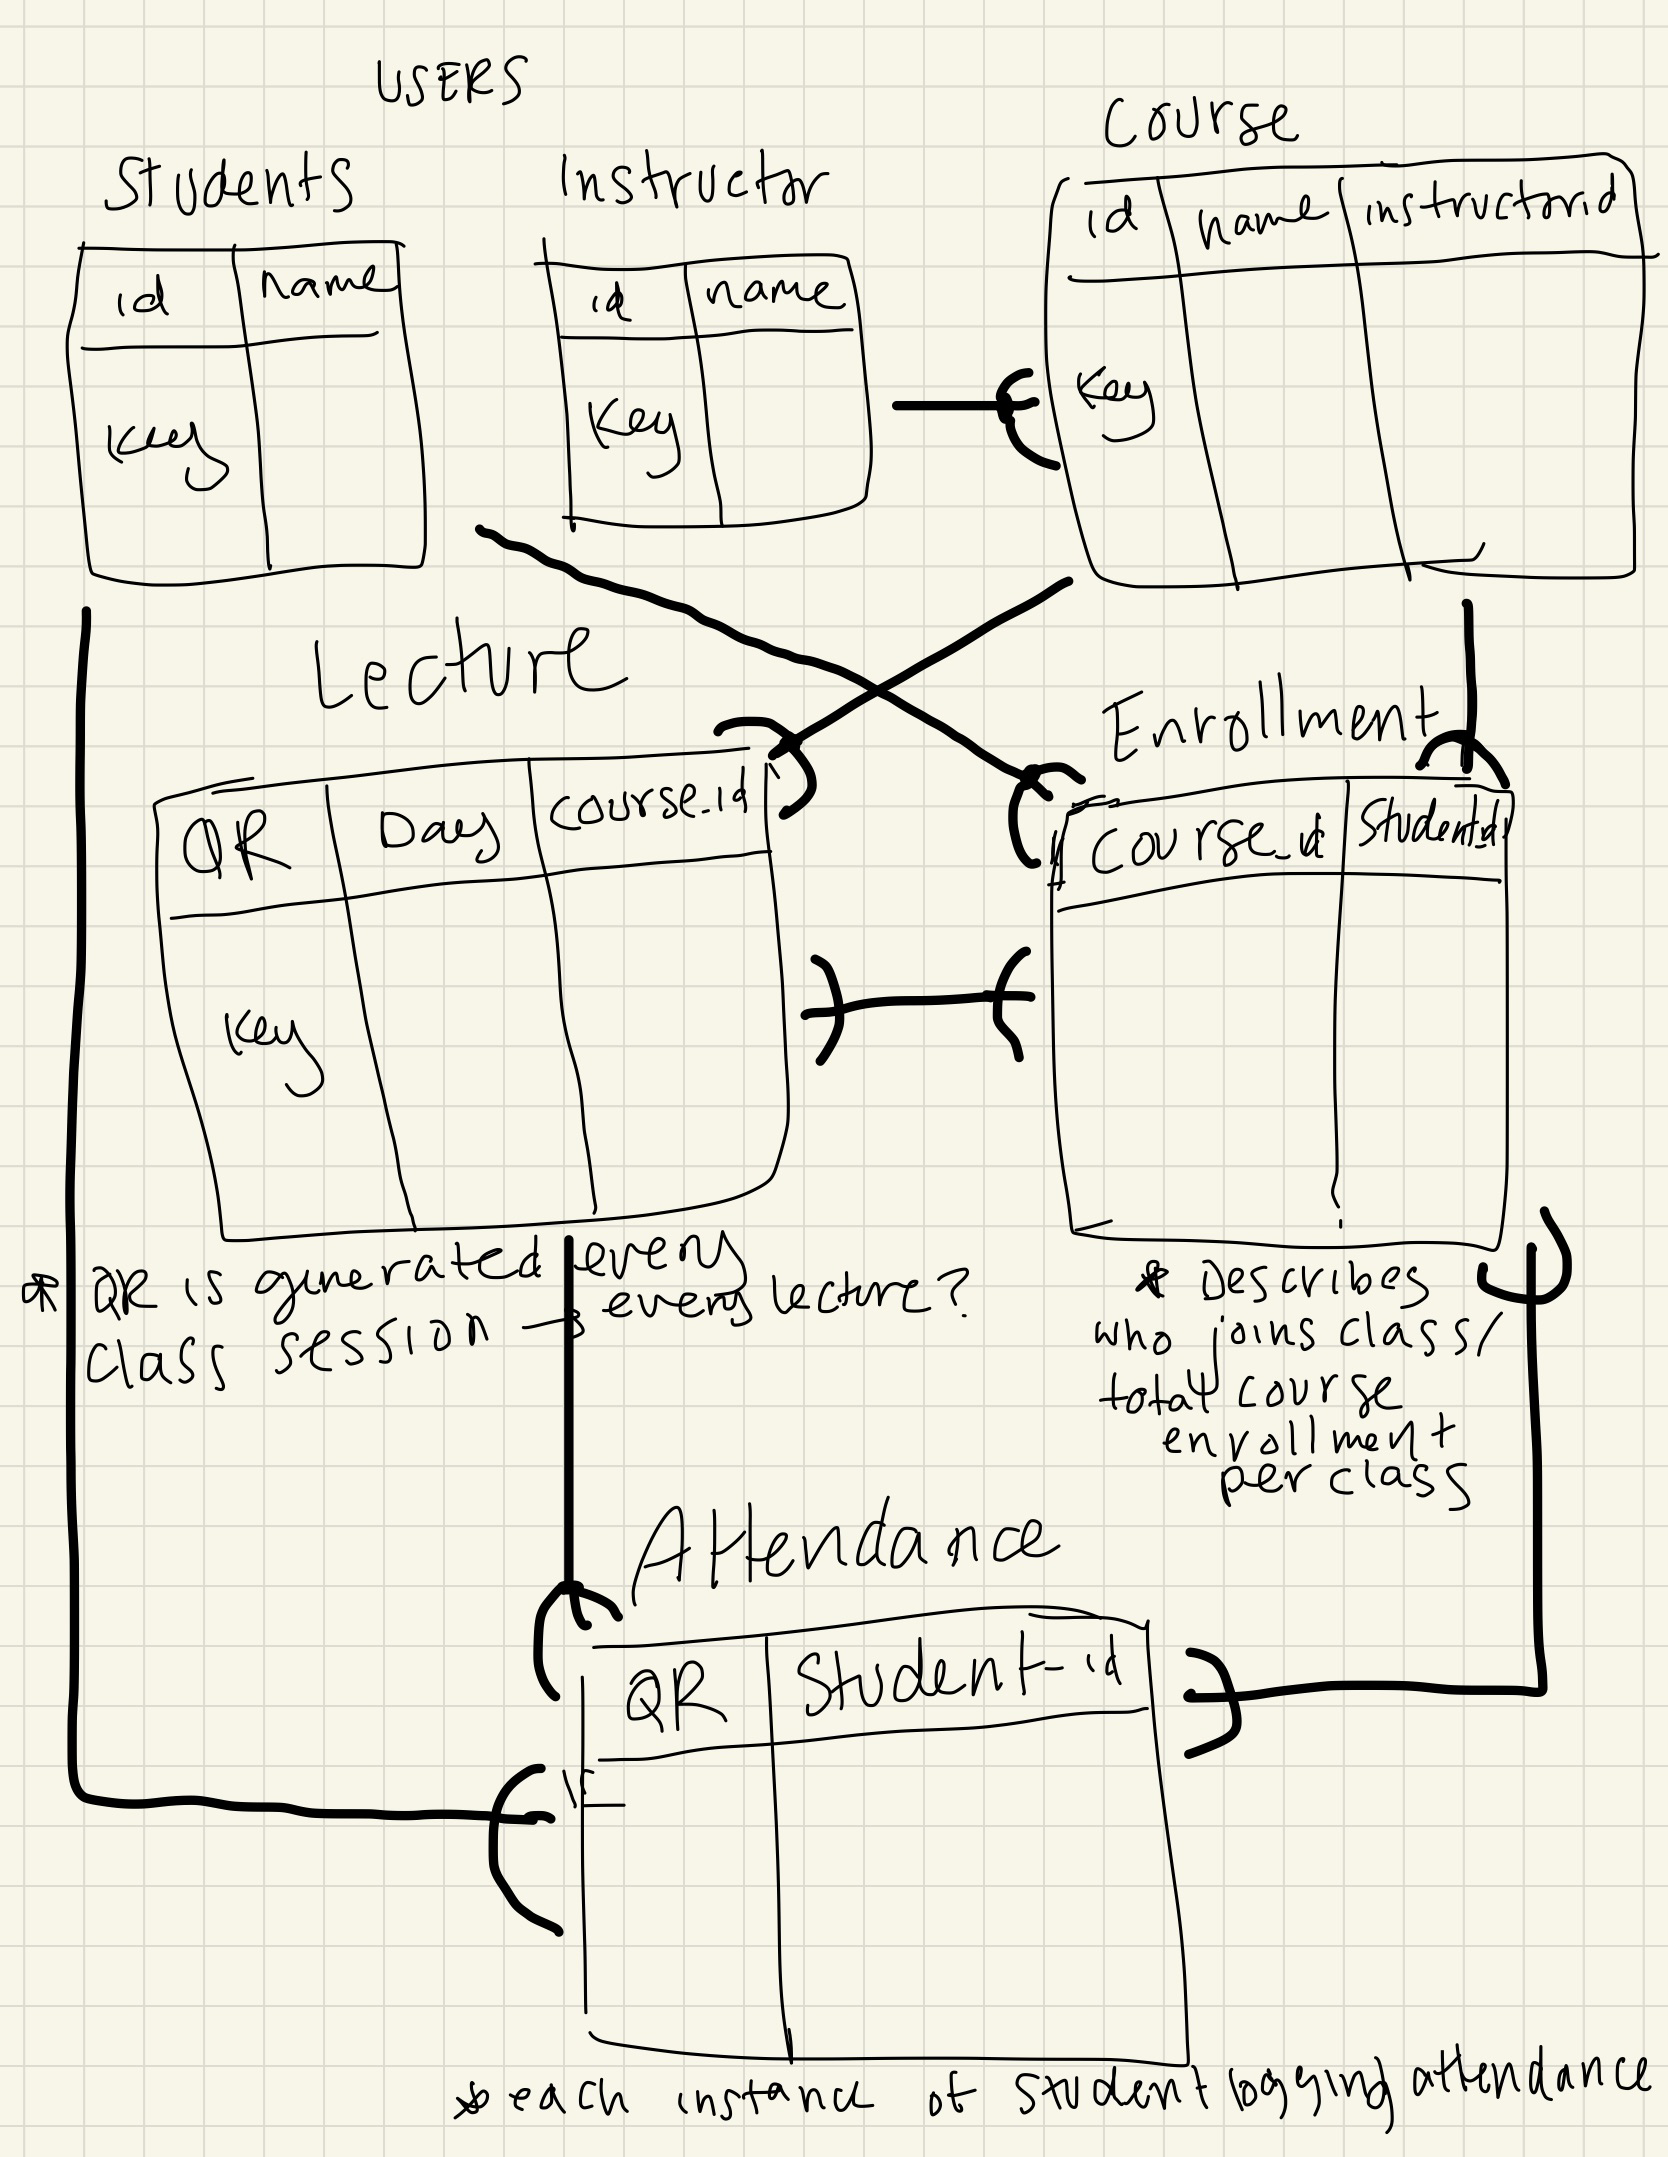 USERS
Students
id name
Key
Instructor
id name
Key
Course
id name instructorid
Key
Lecture
QR Day course_id
Key
* QR is generated every
class session → every lecture?
Enrollment
Course_id Studentid
* Describes
who joins class/
total course
enrollment
per class
Attendance
QR Student_id
* each instance of student logging attendance